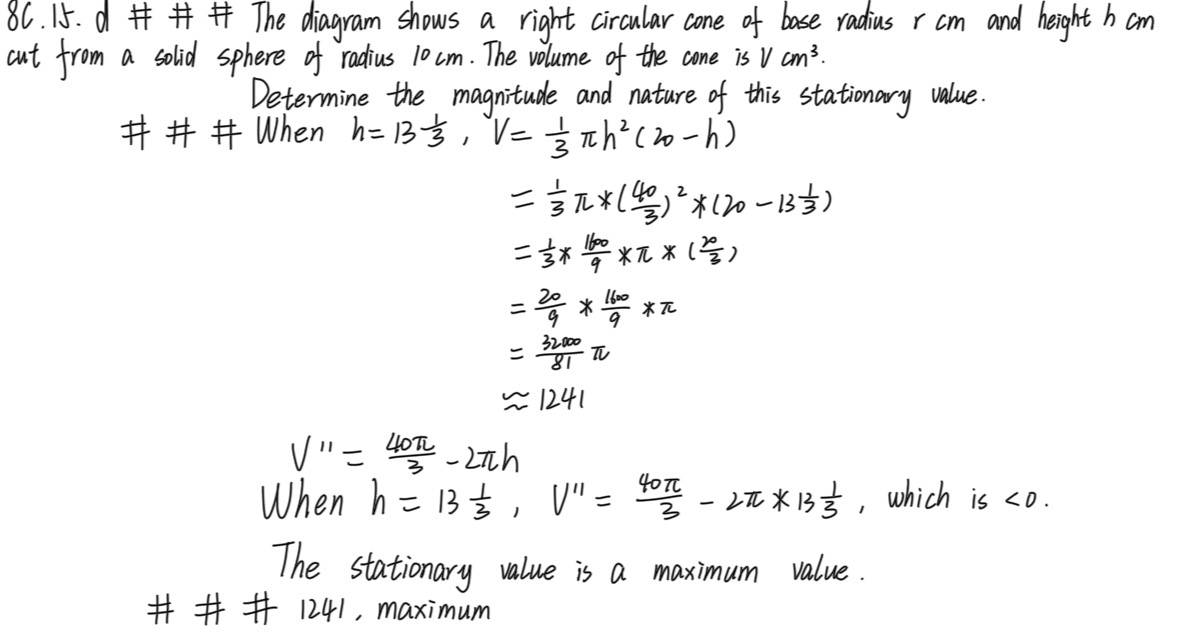 8C.15.d # # # The diagram shows a right circular cone of base radius r cm and height h cm
cut from a solid sphere of radius 10 cm. The volume of the cone is V cm³.
Determine the magnitude and nature of this stationary value.
# # # When h = 13 1/3, V = 1/3 πh²(20 - h)
= 1/3 π * (40/3)² * (20 - 13 1/3)
= 1/3 * 1600/9 * π * (20/3)
= 20/9 * 1600/9 * π
= 32000/81 π
≈ 1241
V'' = 40π/3 - 2πh
When h = 13 1/3, V'' = 40π/3 - 2π * 13 1/3, which is <0.
The stationary value is a maximum value.
# # # 1241, maximum